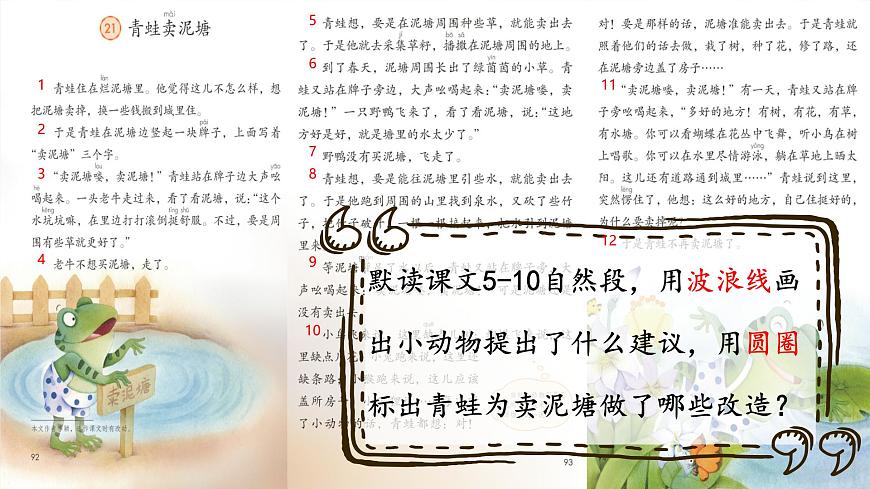 21 青蛙卖泥塘
mài
1 青蛙住在烂泥塘里。他觉得这儿不怎么样，想
làn
把泥塘卖掉，换一些钱搬到城里住。
2 于是青蛙在泥塘边竖起一块牌子，上面写着
pái
“卖泥塘”三个字。
3 “卖泥塘喽，卖泥塘！”青蛙站在牌子边大声吆
lou yāo
喝起来。一头老牛走过来，看了看泥塘，说：“这个
hè
水坑坑嘛，在里边打打滚倒挺舒服。不过，要是周
kēng tǐng shū
围有些草就更好了。”
4 老牛不想买泥塘，走了。
卖泥塘
92
5 青蛙想，要是在泥塘周围种些草，就能卖出去
了。于是他就去采集草籽，播撒在泥塘周围的地上。
jí sǎ
6 到了春天，泥塘周围长出了绿茵茵的小草。青
yīn
蛙又站在牌子旁边，大声吆喝起来：“卖泥塘喽，卖
泥塘！”一只野鸭飞来了，看了看泥塘，说：“这地
方好是好，就是塘里的水太少了。”
7 野鸭没有买泥塘，飞走了。
8 青蛙想，要是能往泥塘里引些水，就能卖出去
了。于是他跑到周围的山里找到泉水，又砍了些竹
9 等泥塘
声吆喝起
没有卖出去
10 小鸟
里缺点儿
缺条路
盖所房子
了小动物的话，青蛙都想：对！
93
对！要是那样的话，泥塘准能卖出去。于是青蛙就
照着他们的话去做，栽了树，种了花，修了路，还
在泥塘旁边盖了房子……
11 “卖泥塘喽，卖泥塘！”有一天，青蛙又站在牌
子旁吆喝起来，“多好的地方！有树，有花，有草，
有水塘。你可以看蝴蝶在花丛中飞舞，听小鸟在树
上唱歌。你可以在水里尽情游泳，躺在草地上晒太
yǒng
阳。这儿还有道路通到城里……”青蛙说到这里，
突然愣住了，他想：这么好的地方，自己住挺好的，
lèng
为什么要卖掉呢？
12 于是青蛙不再卖泥塘了。
默读课文5-10自然段，用波浪线画
出小动物提出了什么建议，用圆圈
标出青蛙为卖泥塘做了哪些改造？